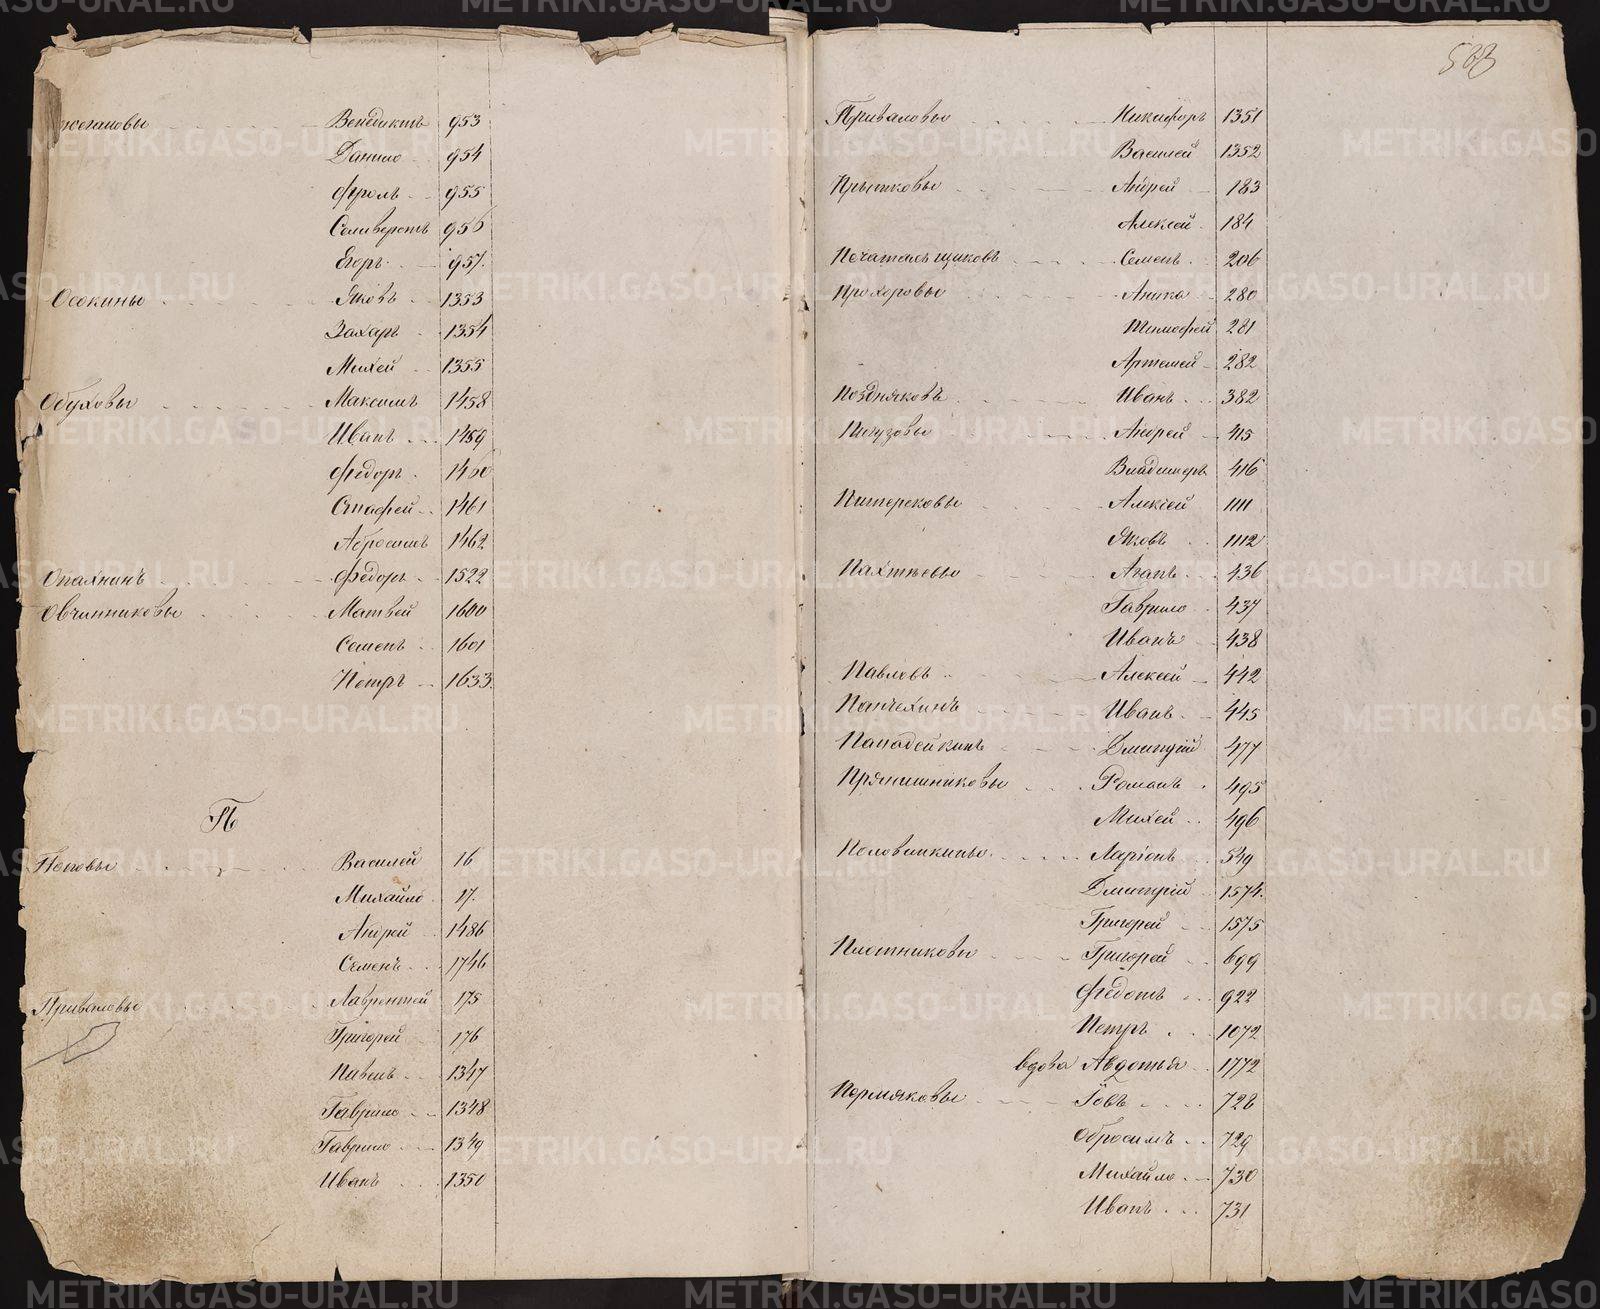 жегановы Венедиктъ 953
Данило 954
Фролъ 955
Селиверстъ 956
Егоръ 957
Осокины Яковъ 1353
Захаръ 1354
Михей 1355
Обуховы Максимъ 1458
Иванъ 1459
Федоръ 1460
Астафей 1461
Абросимъ 1462
Опахнинъ Федоръ 1522
Овчинниковы Матвей 1600
Семенъ 1601
Петръ 1633
П
Поповы Василей 16
Михайло 17
Андрей 1486
Семенъ 1746
Приваловы Лаврентей 175
Григорей 176
Павелъ 1347
Гаврило 1348
Гаврило 1349
Иванъ 1350
533
Приваловы Никифоръ 1351
Василей 1352
Прытковы Андрей 183
Алексей 184
Печатальщиковъ Семенъ 206
Прохоровы Аника 280
Тимофей 281
Артемей 282
Поздняковъ Иванъ 382
Пигузовы Андрей 415
Владимеръ 416
Питерековы Алексей 1111
Яковъ 1112
Пахтѣевы Агапъ 436
Гаврило 437
Иванъ 438
Павловъ Алексей 442
Панчехинъ Иванъ 445
Пападейкинъ Дмитрій 477
Прянишниковы Романъ 495
Михей 496
Половинкины Ларіонъ 549
Дмитрій 1574
Григорей 1575
Плотниковы Григорей 699
Федотъ 922
Петръ 1072
вдова Авдотья 1772
Пермяковы Іовъ 728
Обросимъ 729
Михайло 730
Иванъ 731
METRIKI.GASO-URAL.RU